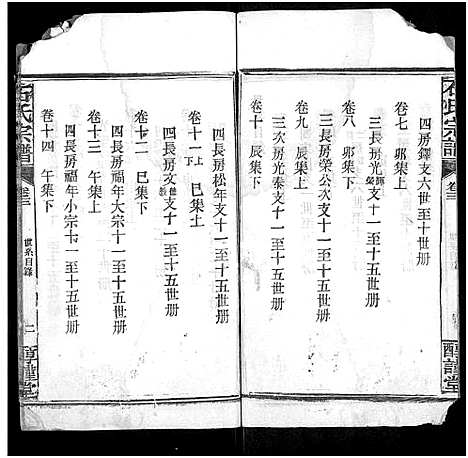 石氏宗譜
卷三
醇謹堂
四房鐸支六世至十世册
卷七 卯集上
三長房光
卷八 卯集下
三長房榮公次支十一至十五世册
卷九 辰集上
三次房光泰支十一至十五世册
卷十 辰集下
卷十一上下 巳集上
四長房松年支十一至十五世册
卷十二 巳集下
四長房攵支十一至十五世册
卷十三 午集上
四長房福年大宗十一至十五世册
卷十四 午集下
四長房福年小宗十一至十五世册
石氏宗譜
卷三
世系目錄
二
醇謹堂